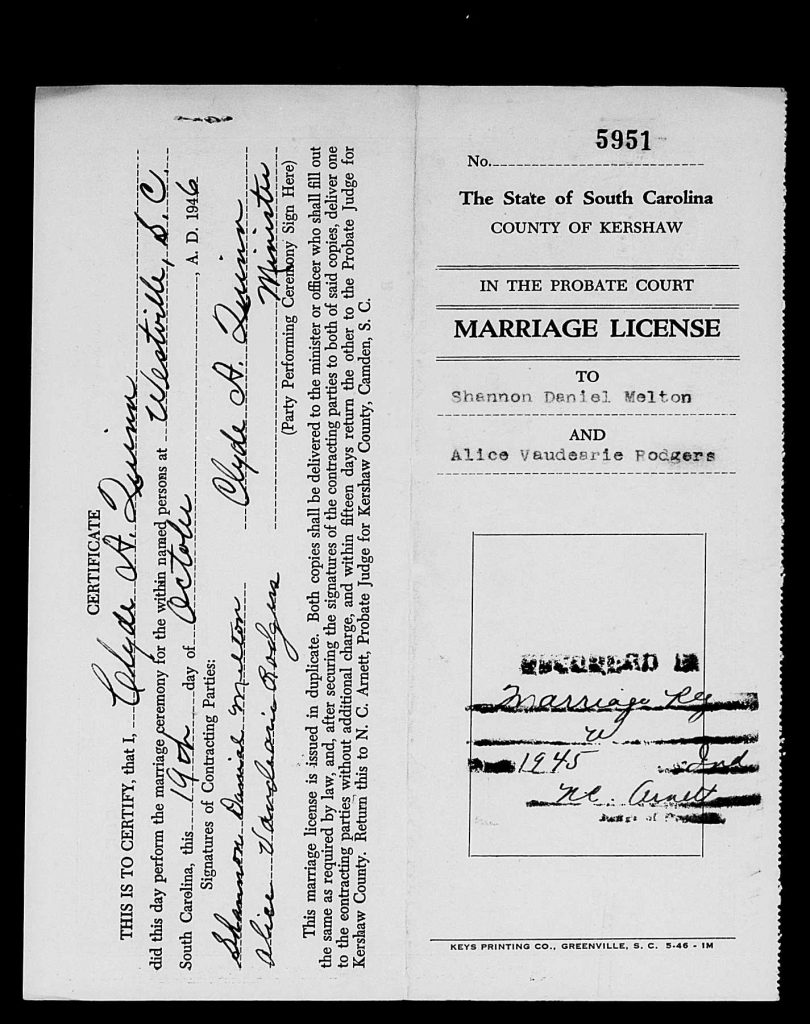 CERTIFICATE
THIS IS TO CERTIFY, that I, Clyde A. Quinn
did this day perform the marriage ceremony for the within named persons at Westville, S. C.
South Carolina, this 19th day of October, A. D. 1946
Signatures of Contracting Parties:
Shannon Daniel Melton Clyde A. Quinn
Alice Vaudearie Rodgers Minister
(Party Performing Ceremony Sign Here)
This marriage license is issued in duplicate. Both copies shall be delivered to the minister or officer who shall fill out
the same as required by law, and, after securing the signatures of the contracting parties to both of said copies, deliver one
to the contracting parties without additional charge, and within fifteen days return the other to the Probate Judge for
Kershaw County. Return this to N. C. Arnett, Probate Judge for Kershaw County, Camden, S. C.
No. 5951
The State of South Carolina
COUNTY OF KERSHAW
IN THE PROBATE COURT
MARRIAGE LICENSE
TO
Shannon Daniel Melton
AND
Alice Vaudearie Rodgers
RECORDED IN
Marriage Reg
W
1945 Ind
N.C. Arnett
Judge of
KEYS PRINTING CO., GREENVILLE, S. C. 5-46 - 1M